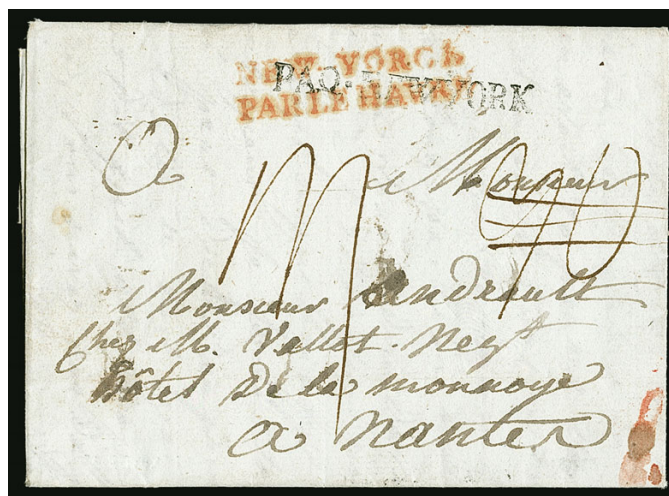 NEW-YORCK
PAR LE HAVRE
PAQ. NEW YORK
A Monsieur
Monsieur
chez M. Vallot. Negt
hôtel de la monnoye
a nantes